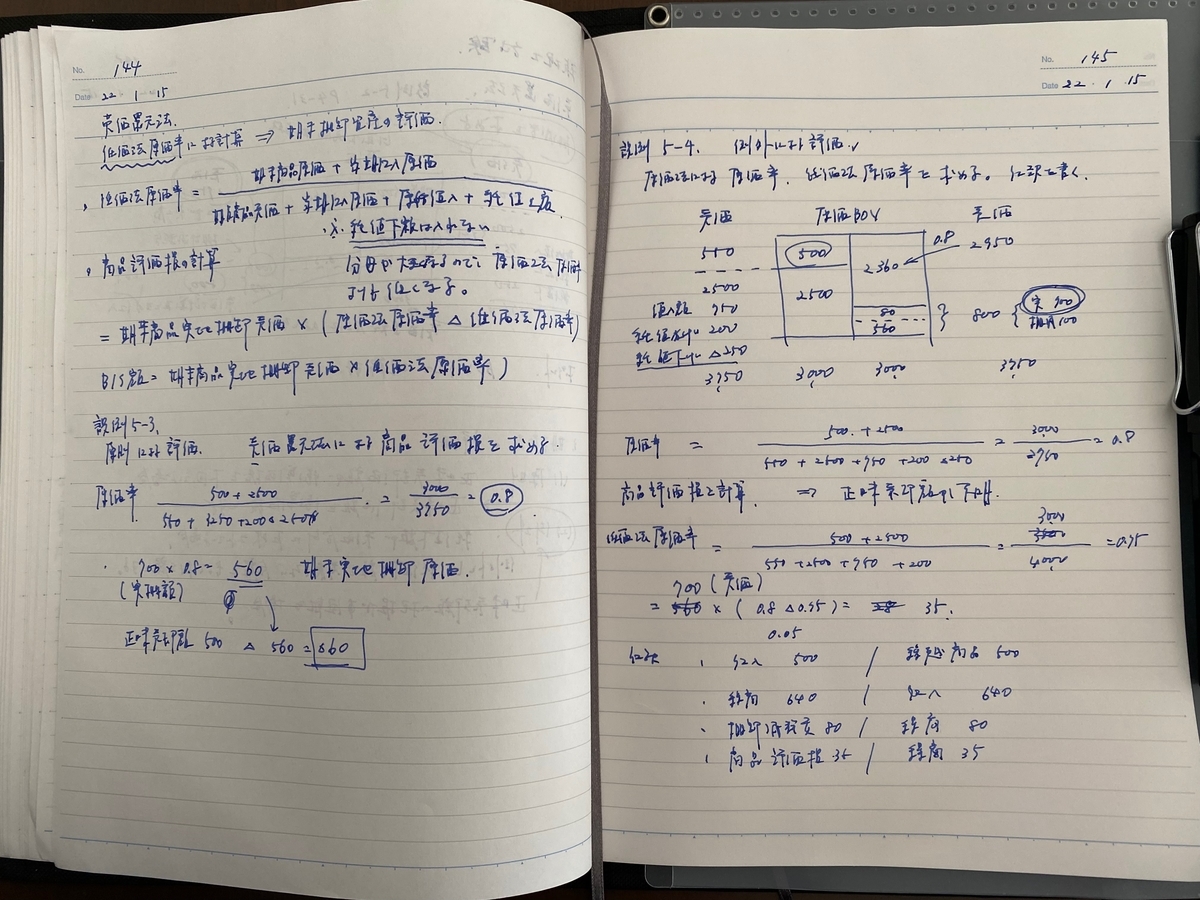 No. 144
Date 22 ・ 1 ・ 15
売価還元法.
低価法原価率における計算 ⇒ 期末棚卸資産の評価.
・低価法原価率 =
期首商品原価 + 当期仕入原価
期首商品売価 + 当期仕入原価 + 原始値入 + 純値上額
※. 純値下額は入れない
分母が大きくなるので 原価法原価率
よりも低くなる。
・商品評価損の計算
= 期末商品実地棚卸売価 × (原価法原価率 △ 低価法原価率)
B/S額 = 期末商品実地棚卸売価 × 低価法原価率)
設例5-3.
原則における評価. 売価還元法における商品評価損を求める
原価率
500 + 2500
550 + 3250 + 200 △ 250
= 3000
3750
= 0.8
・ 700 × 0.8 = 560 期末実地棚卸原価.
(実棚額)
正味売却額 500 △ 560 = △60
No. 145
Date 22 ・ 1 ・ 15
設例 5-4. 例外における評価.
原価法における原価率, 低価法原価率を求める。仕訳を書く.
売価 原価BOX 売価
550 500 2360 0.8 2950
2500 2500
値入額 750 80
純値上げ 200 560 800 実 700
棚減100
純値下げ △250
3750 3000 3000 3750
原価率 =
500 + 2500
550 + 2500 + 750 + 200 △250
= 3000
3750
= 0.8
商品評価損を計算 ⇒ 正味売却額が不明.
低価法原価率 =
500 + 2500
550 + 2500 + 750 + 200
= 3000
4000
= 0.75
700 (売価)
= × (0.8 △ 0.75) = 35.
0.05
仕訳 ・ 仕入 500 / 繰越商品 500
・ 繰商 640 / 仕入 640
・ 棚卸減耗費 80 / 繰商 80
・ 商品評価損 35 / 繰商 35